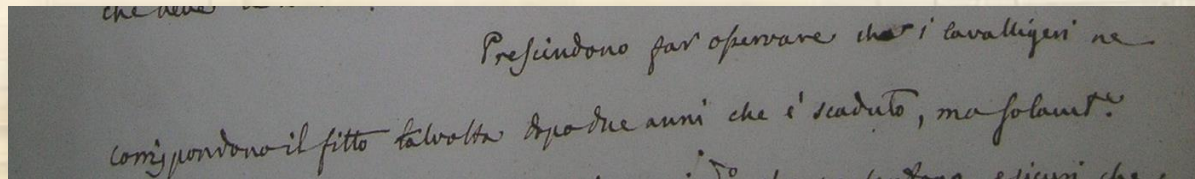 che deve
Prescindono far osservare che i Cavalligeri ne
corrispondono il fitto talvolta dopo due anni che è scaduto, ma solamt.e
e sicuri che